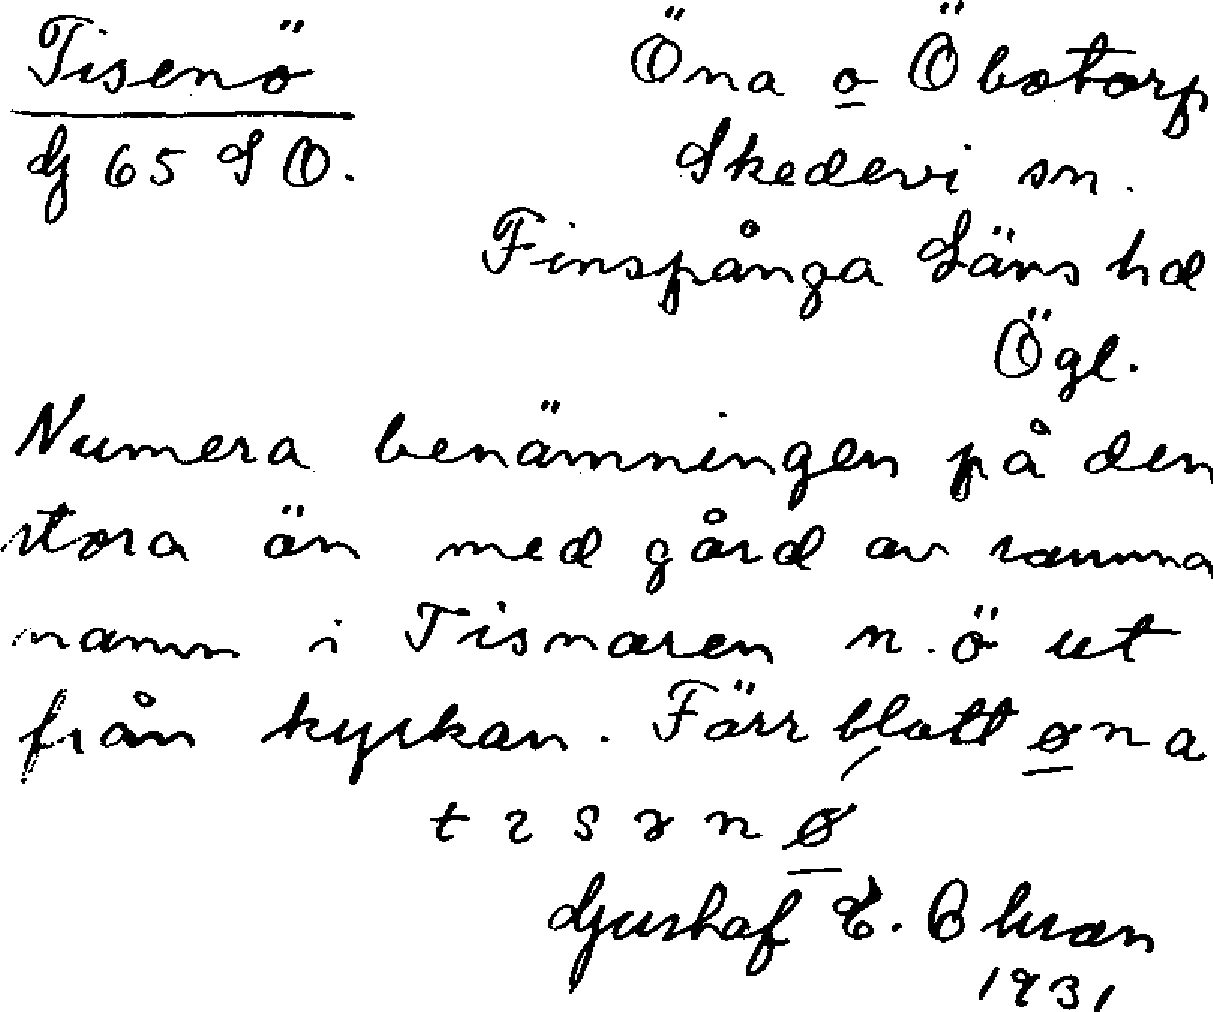 Tisenö
G 65 SO.
Öna o Öbotorp
Skedevi sn.
Finspånga Läns hd
Ögl.
Numera benämningen på den
stora ön med gård av samma
namn i Tisnaren n.ö ut
från kyrkan. Förr blott øna
Gustaf E.
1931